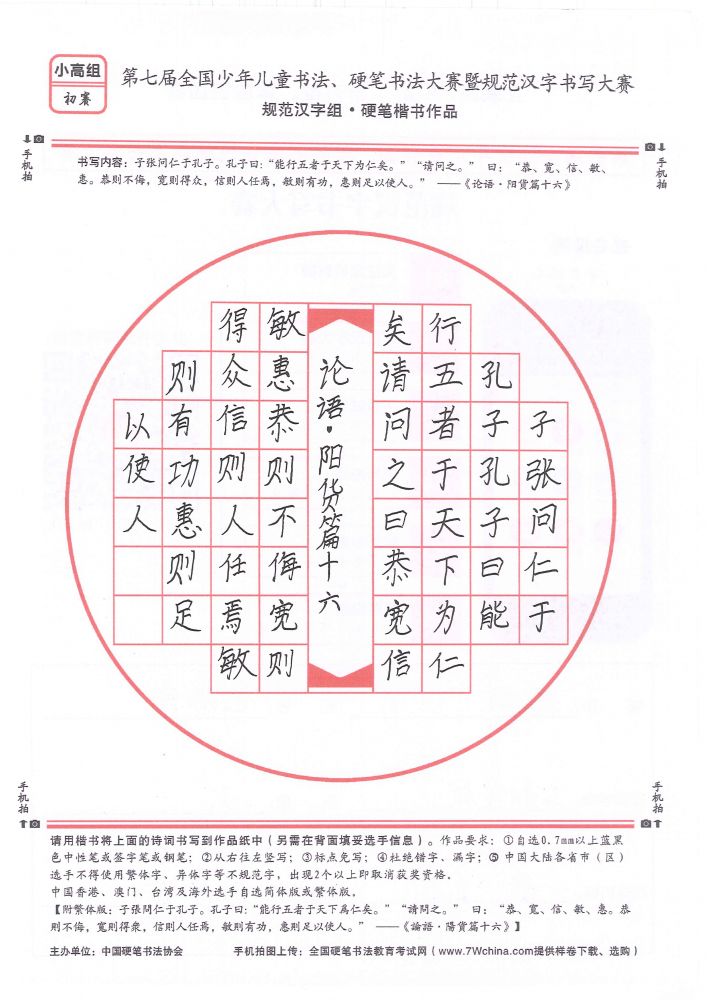 小高组
初赛
第七届全国少年儿童书法、硬笔书法大赛暨规范汉字书写大赛
规范汉字组·硬笔楷书作品
手机拍
手机拍
书写内容：子张问仁于孔子。孔子曰：“能行五者于天下为仁矣。”“请问之。” 曰：“恭、宽、信、敏、
惠。恭则不侮，宽则得众，信则人任焉，敏则有功，惠则足以使人。” ——《论语·阳货篇十六》
子张问仁于
孔子孔子曰能
行五者于天下为仁
矣请问之曰恭宽信
论语·阳货篇十六
敏惠恭则不侮宽则
得众信则人任焉敏
则有功惠则足
以使人
手机拍
手机拍
请用楷书将上面的诗词书写到作品纸中（另需在背面填妥选手信息）。作品要求：①自选0.7mm以上蓝黑
色中性笔或签字笔或钢笔；②从右往左竖写；③标点免写；④杜绝错字、漏字；⑤中国大陆各省市（区）
选手不得使用繁体字、异体字等不规范字，出现2个以上即取消获奖资格。
中国香港、澳门、台湾及海外选手自选简体版或繁体版。
【附繁体版：子張問仁于孔子。孔子曰：“能行五者于天下爲仁矣。”“請問之。” 曰：“恭、寬、信、敏、惠。恭
則不侮，寬則得衆，信則人任焉，敏則有功，惠則足以使人。” ——《論語·陽貨篇十六》】
主办单位：中国硬笔书法协会
手机拍图上传：全国硬笔书法教育考试网（www.7Wchina.com提供样卷下载、选购）